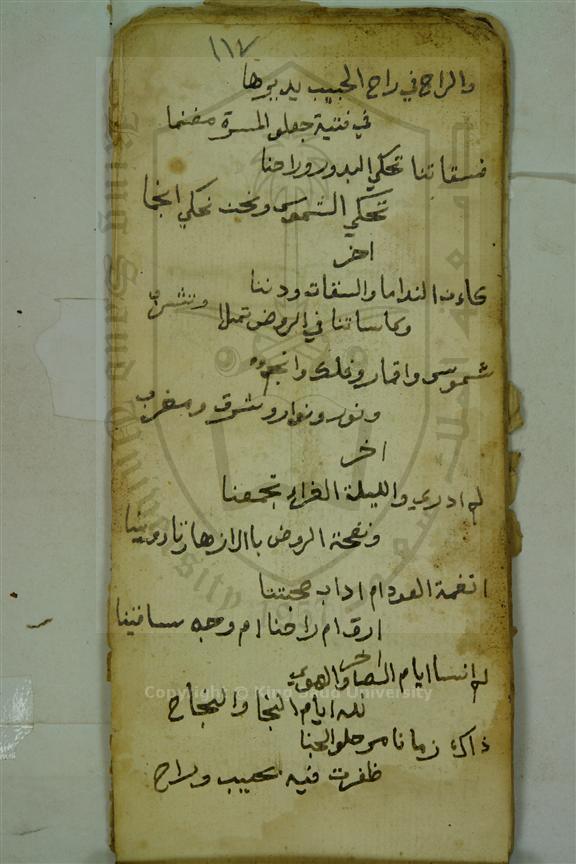 ١١٧
والراح في راح الحبيب يديرها
في فتية جعلو المسرة مغنما
فسقاتنا تحكي البدور وراحنا
تحكي الشموس ونحن نحكي انجما
اخر
كاءن النداما والسقات ودننا
وكاساتنا في الروض تملا وتشرب
شموس واقمار وفلك وانجم
ونور ونوار وشرق ومغرب
اخر
لم ادري والليلة الغراء تجمعنا
ونفحة الروض باالازهار تاروينا
انغمة العود ام اداب صحبتنا
ارق ام راحنا ام وجه ساقينا
اخر
لم انسا ايام الصبا والهوى
لله ايام النجا والنجاح
ذاك زمانا مر حلو الجنا
ظفرت فيه بحبيب وراح
Copyright © King Saud University